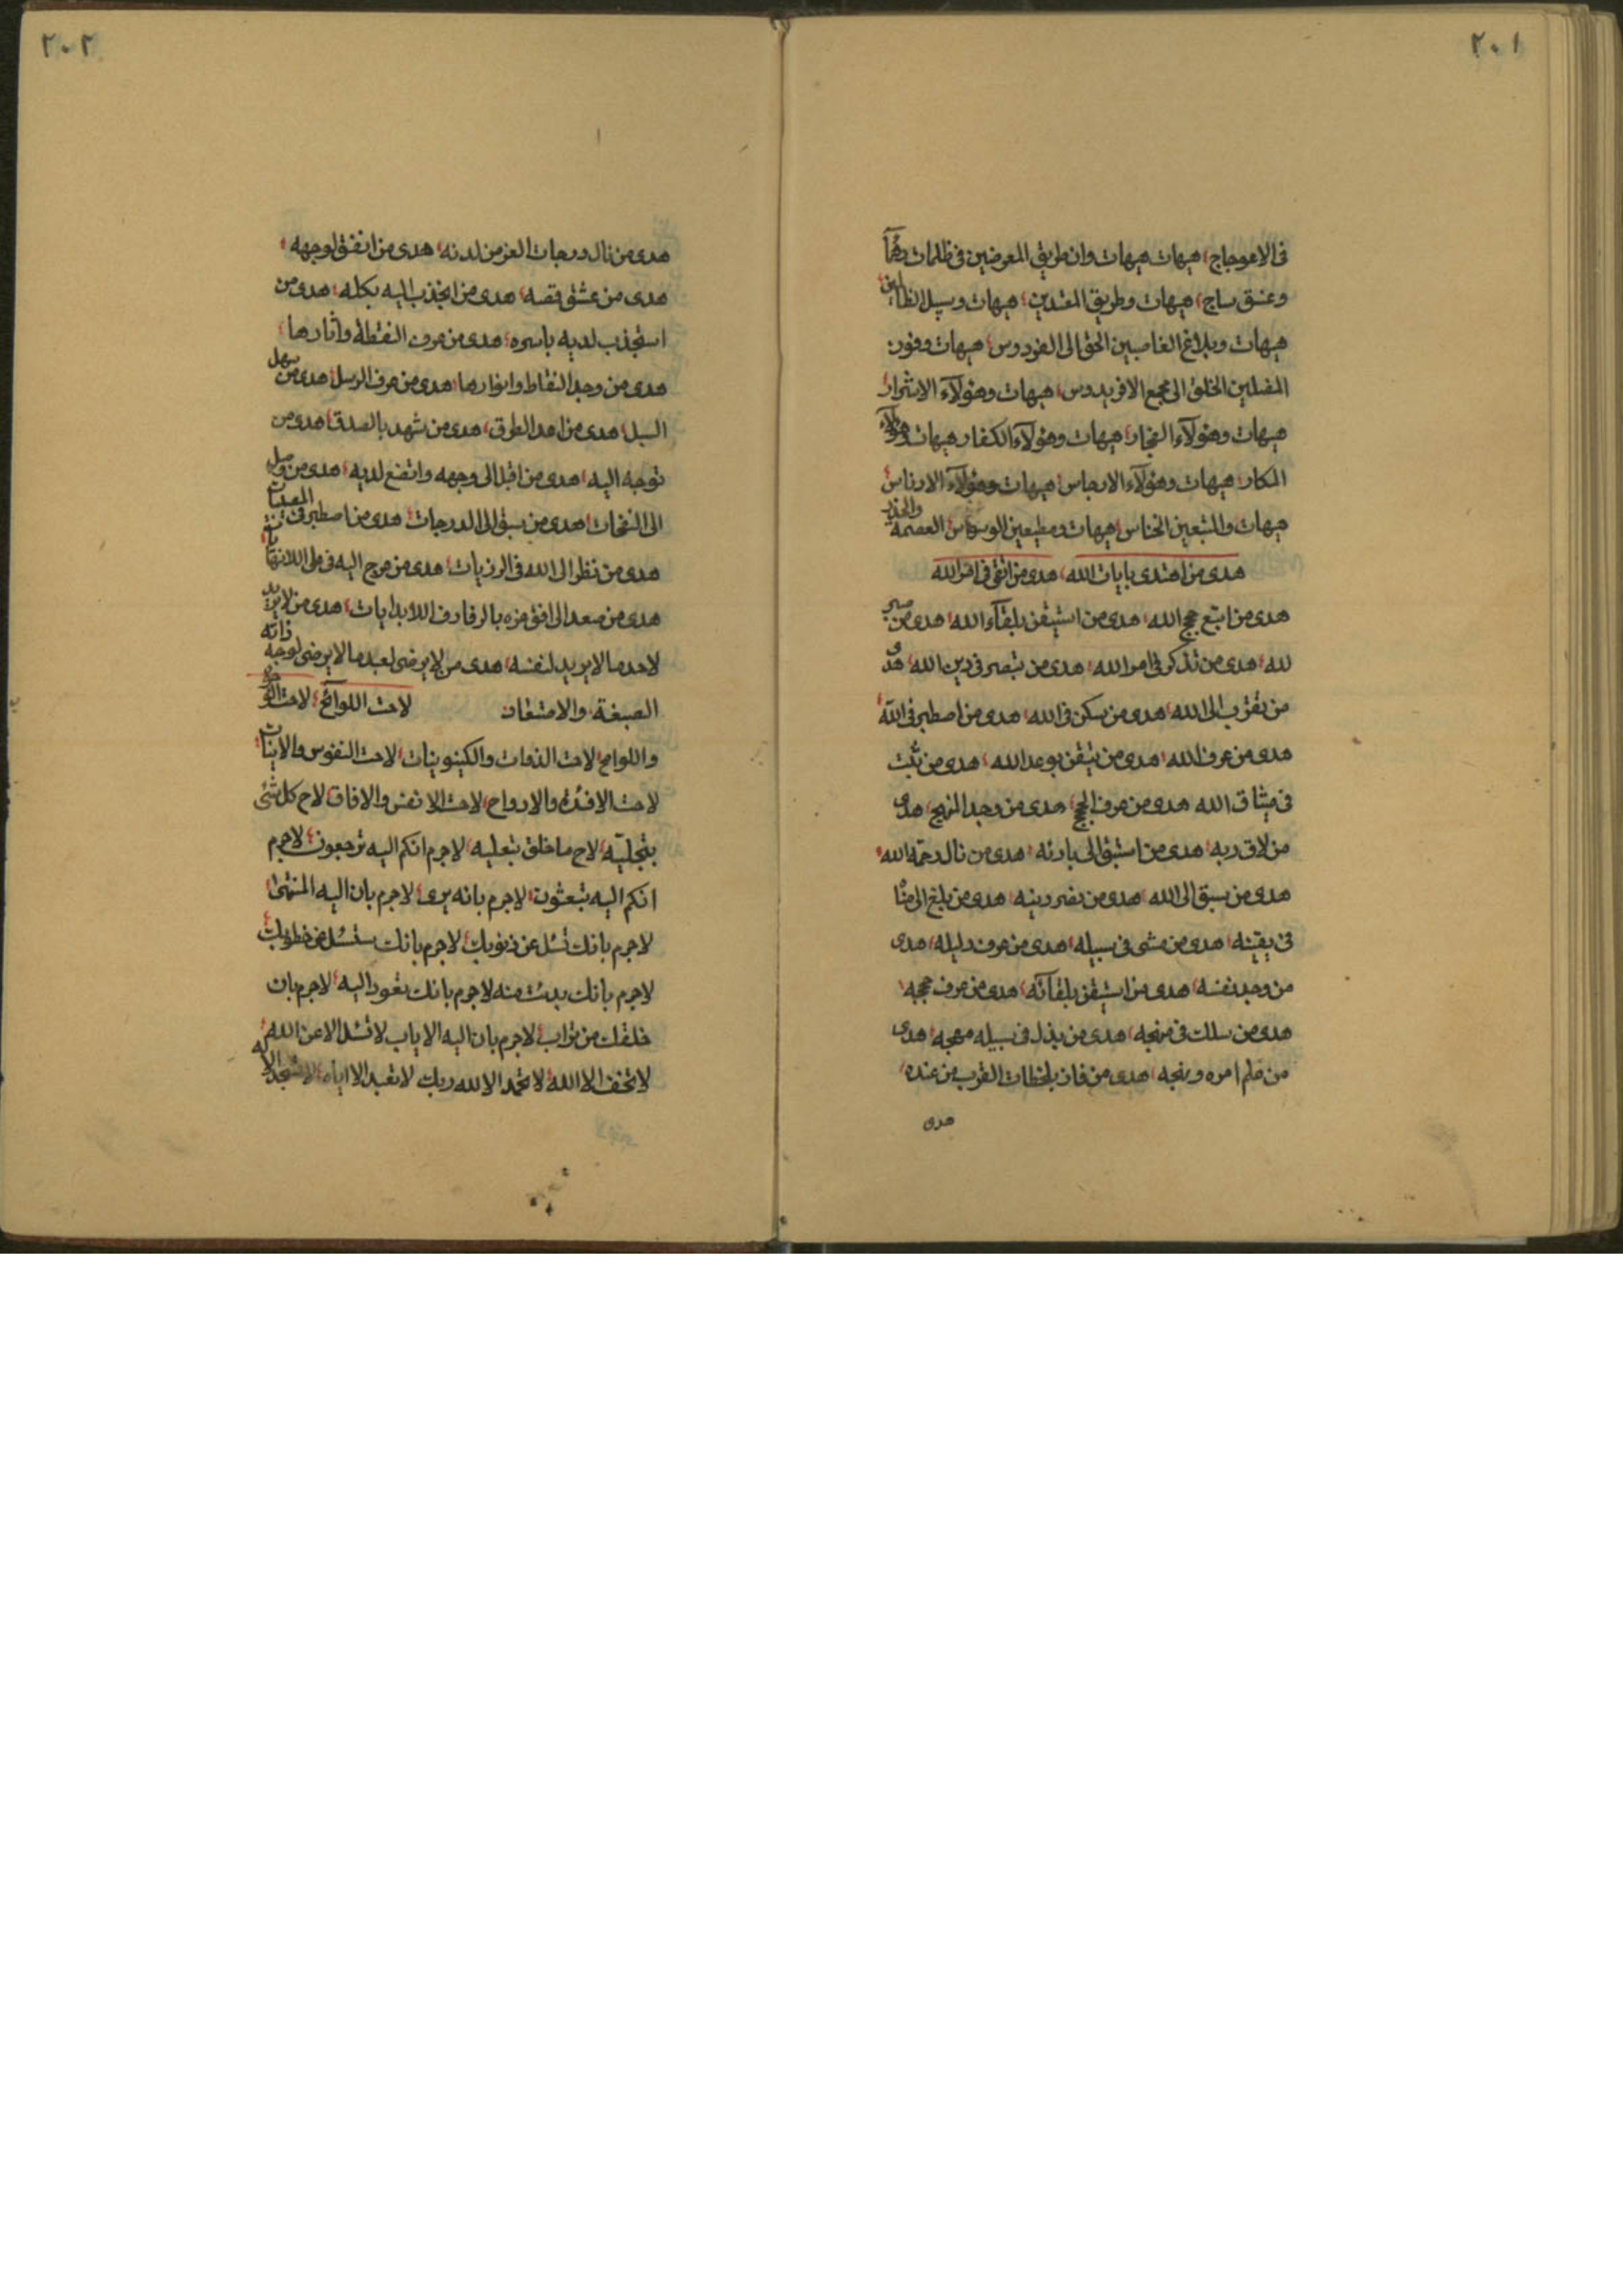 ٢٠١
فى الاعوجاج، هيهات هيهات وان طريق المعرضين فى ظلمات
وغسق ساج، هيهات وطريق المفسدين، هيهات وسبيل الظالمين
هيهات وبلاغ الغاصبين الحق الى الفردوس، هيهات وفوز
المضلين الخلق الى مجمع الافريدوس، هيهات وهؤلآء الاشرار
هيهات وهؤلآء الفجار، هيهات وهؤلآء الكفار هيهات وهؤلآء
المكار، هيهات وهؤلآء الارجاس، هيهات وهؤلآء الادناس
هيهات والمتبعين الخناس، هيهات ومطيعين الوسواس، العصمة والحذر
هدى من اهتدى بايات الله، هدى من اتقى فى امر الله
هدى من اتبع حجج الله، هدى من استيقن بلقآء الله، هدى من صبر
لله، هدى من تذكر فى امر الله، هدى من تبصر فى دين الله، هدى
من تقرب الى الله، هدى من سكن فى الله، هدى من اصطبر فى الله
هدى من عرف الله، هدى من تيقن بوعد الله، هدى من ثبت
فى ميثاق الله هدى من عرف الحجج، هدى من وجد المنهج، هدى
من لاقى ربه، هدى من استبق الى بارئه، هدى من نال رحمة الله
هدى من سبق الى الله، هدى من نصر دينه، هدى من بلغ الى
فى يقينه، هدى من مشى فى سبيله، هدى من عرف دليله، هدى
من وجد نفسه، هدى من استيقن بلقآئه، هدى من عرف حججه
هدى من سلك فى منهجه، هدى من بذل فى سبيله مهجه، هدى
من علم امره ونهجه، هدى من فاز بلحظات القرب من عنده
هدى
٢٠٢
هدى من نال درجات العز من لدنه، هدى من انفق لوجهه
هدى من عشق قصه، هدى من انجذب اليه بكله، هدى من
استجذب لديه باسره، هدى من عرف النقطة وآثارها
هدى من وجد النقاط وانوارها، هدى من عرف الرسل، هدى من سهل
السبل، هدى من اهد الطرق، هدى من شهد بالصدق، هدى من
توجه اليه، هدى من اقبل الى وجهه واتضع لديه، هدى من وصل
الى النفحات، هدى من سبق الى الدرجات، هدى من اصطبر فى
هدى من نظر الى الله فى الرزيات، هدى من عرج اليه فى على اللانهايات
هدى من صعد الى افق عزه بالرفارف اللابدايات، هدى من لا يريد
لاحد ما لا يريد لنفسه، هدى من لا يرضى لعبد ما لا يرضى لوجه ذاته
الصبغة والامتقان لاحت اللوائح، لاحت
واللوامح، لاحت الذوات والكينونيات، لاحت النفوس والانيات
لاحت الافئدة والارواح، لاحت الانفس والافاق، لاح كل شئ
بتجليه، لاح ما خلق بتعليه، لاجرم انكم اليه ترجعون، لاجرم
انكم اليه تبعثون، لاجرم بانه يرى، لاجرم بان اليه المنتهى
لاجرم بانك تسئل عن ذنوبك، لاجرم بانك ستسئل عن خطوبك
لاجرم بانك بدئت منه لاجرم بانك تعود اليه، لاجرم بان
خلقك من تراب، لاجرم بان اليه الاياب لا تسئل الا عن الله
لا تخف الا الله، لا تحمد الا لله ربك لا تعبد الا اياه، لا تسجد الا له